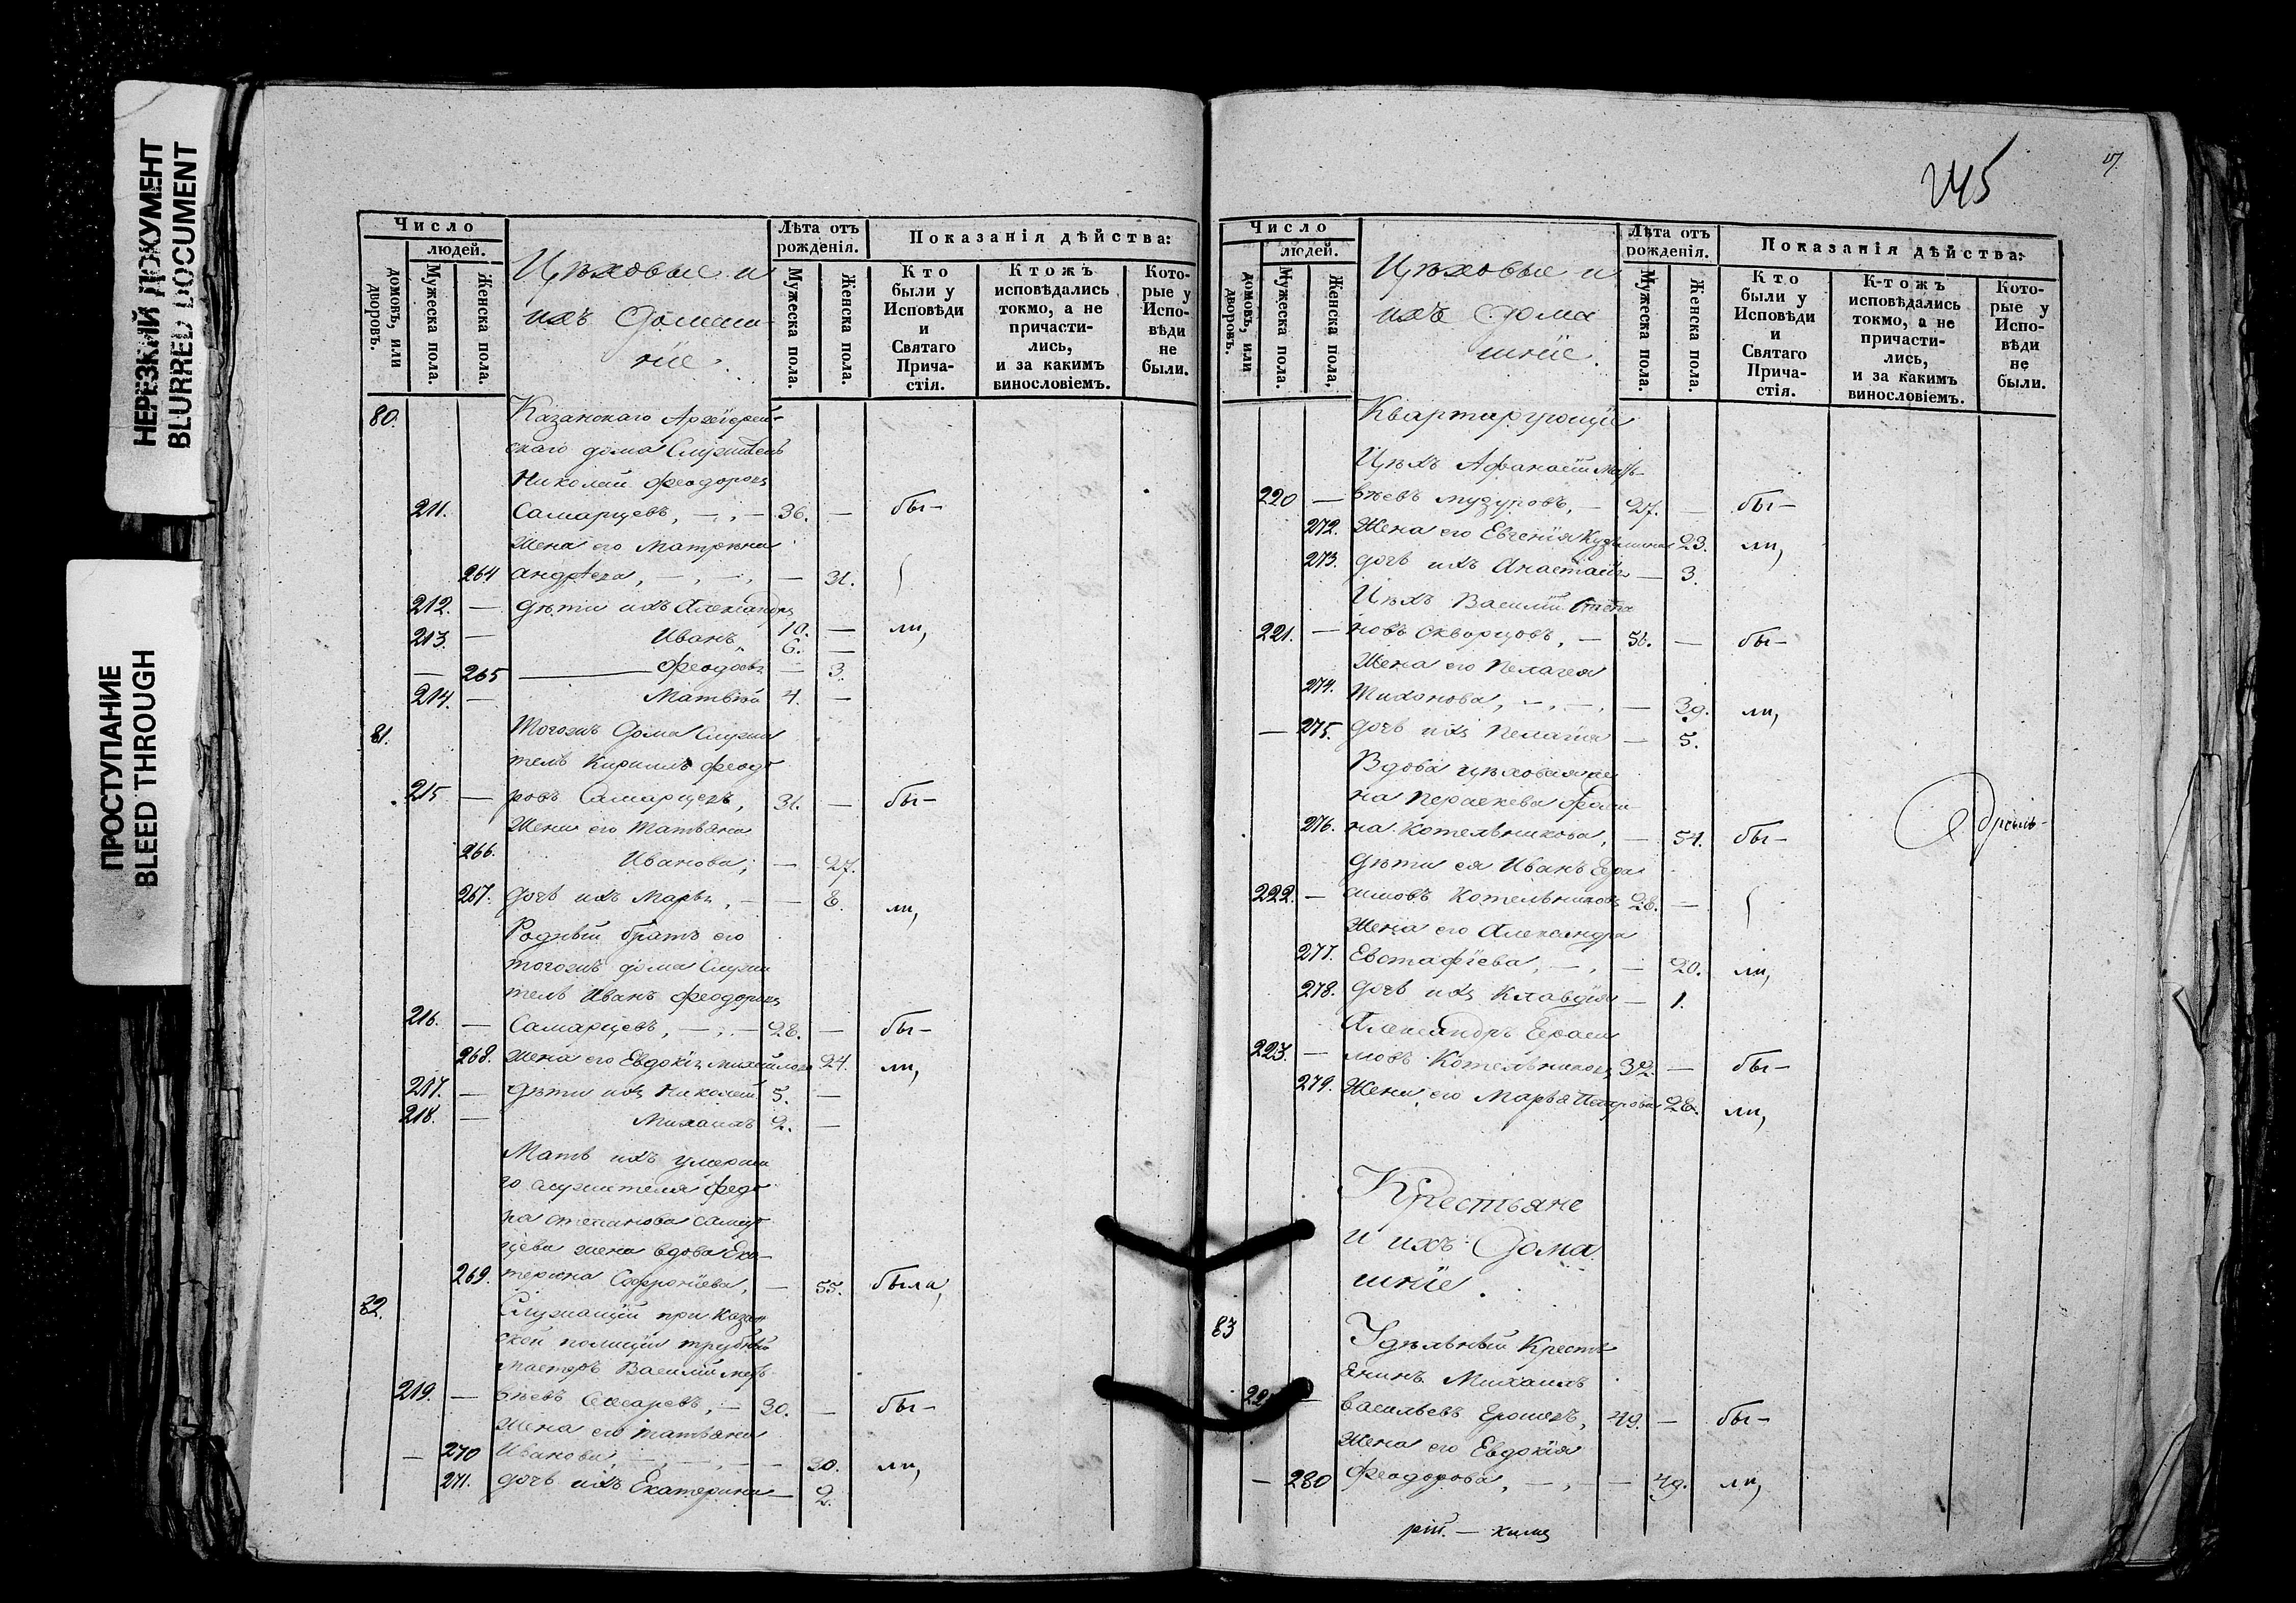 НЕРЕЗКИЙ ДОКУМЕНТ
BLURRED DOCUMENT
ПРОСТУПАНИЕ
BLEED THROUGH
Число
людей.
домовъ, или дворовъ.
Мужеска пола.
Женска пола.
Цѣховые и
ихъ Домаш-
ніе.
Лѣта отъ рожденія.
Мужеска пола.
Женска пола.
Показанія дѣйства:
Кто были у Исповѣди и Святаго Прича-стія.
Ктожъ исповѣдались токмо, а не причасти-лись, и за какимъ винословіемъ.
Кото-рые у Испо-вѣди не были.
80. Казанскаго Архіерей-
скаго дома Служитель
Николай Феодоровъ
211. Самарцевъ, — 36. — бы-
Жена его Матрена
264 Андреева, — — 31.
212. — дѣти ихъ Александръ 10. — ли,
213. — Иванъ, 6. —
— 265 Феодосья — 3.
214. — Матвѣй 4. —
81. Тогожъ Дома Служи
тель Кирилъ Феодо
215 — ровъ Самарцевъ, 31. — бы-
Жена его Татьяна
266. Иванова, — 27.
267. дочь ихъ Марья, — 8. ли,
Родный братъ его
тогожъ дома Служи
тель Иванъ Феодоровъ
216. — Самарцевъ, — 28. — бы-
268. Жена его Евдокія Михайлова 24. ли,
217. — дѣти ихъ Николай 5. —
218. — Михаилъ 2. —
Мать ихъ умерша
го служителя Федо
ра Степанова Самар
цева жена вдова Ека-
269. терина Софроніева, — 55. была,
82. Служащій при Казан
ской полиціи трубный
мастеръ Василій Мат
219. — вѣевъ Слесаревъ, — 30. — бы-
Жена его Татьяна
— 270 Иванова, — — 30. ли,
271. дочь ихъ Екатерина — 2.
245
Число
людей.
домовъ, или дворовъ.
Мужеска пола.
Женска пола.
Цѣховые и
ихъ Дома
шніе.
Лѣта отъ рожденія.
Мужеска пола.
Женска пола.
Показанія дѣйства:
Кто были у Исповѣди и Святаго Прича-стія.
К-тожъ исповѣдались токмо, а не причасти-лись, и за какимъ винословіемъ.
Кото-рые у Испо-вѣди не были.
Квартирующіе
Цѣхъ Афанасій Мат-
220 — вѣевъ Музуровъ, — 27. — бы-
272. Жена его Евгенія Кузьмина 23. ли,
273. дочь ихъ Анастасія — 3.
Цѣхъ Василій Степа
221. — новъ Скворцовъ, — 51. — бы-
Жена его Пелагея
274. Тихонова, — — 39. ли,
— 275. дочь ихъ Пелагія — 5.
Вдова цѣховая же
на Параскева
276. на Котельникова, — 54. бы-
дѣти ея Иванъ Гера
222. — симовъ Котельниковъ 28. —
Жена его Александра
277. Евстафіева, — — 20. ли,
278. дочь ихъ Клавдія — 1.
Александръ Гераси
223. — мовъ Котельниковъ 32. — бы-
279. Жена его Марья Петрова 28. ли,
Крестьяне
и ихъ Дома
шніе.
83 Удѣльный Кресть
янинъ Михаилъ
— Васильевъ 49. — бы-
Жена его Евдокія
— 280 Феодорова, — — 49. ли,